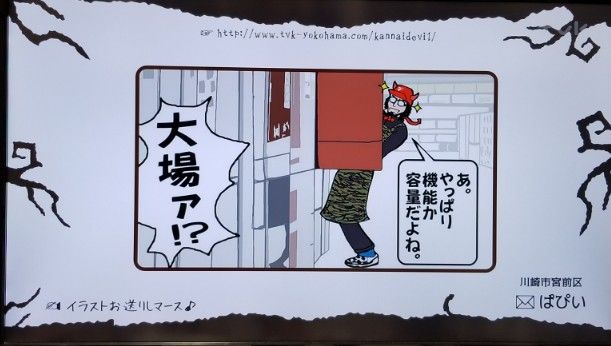 ☞ http://www.tvk-yokohama.com/kannaidevil/
tvk
大場ァ!?
あ。
やっぱり
機能か
容量だよね。
川崎市宮前区
✉ ぱぴぃ
イラストお送りしマース♪